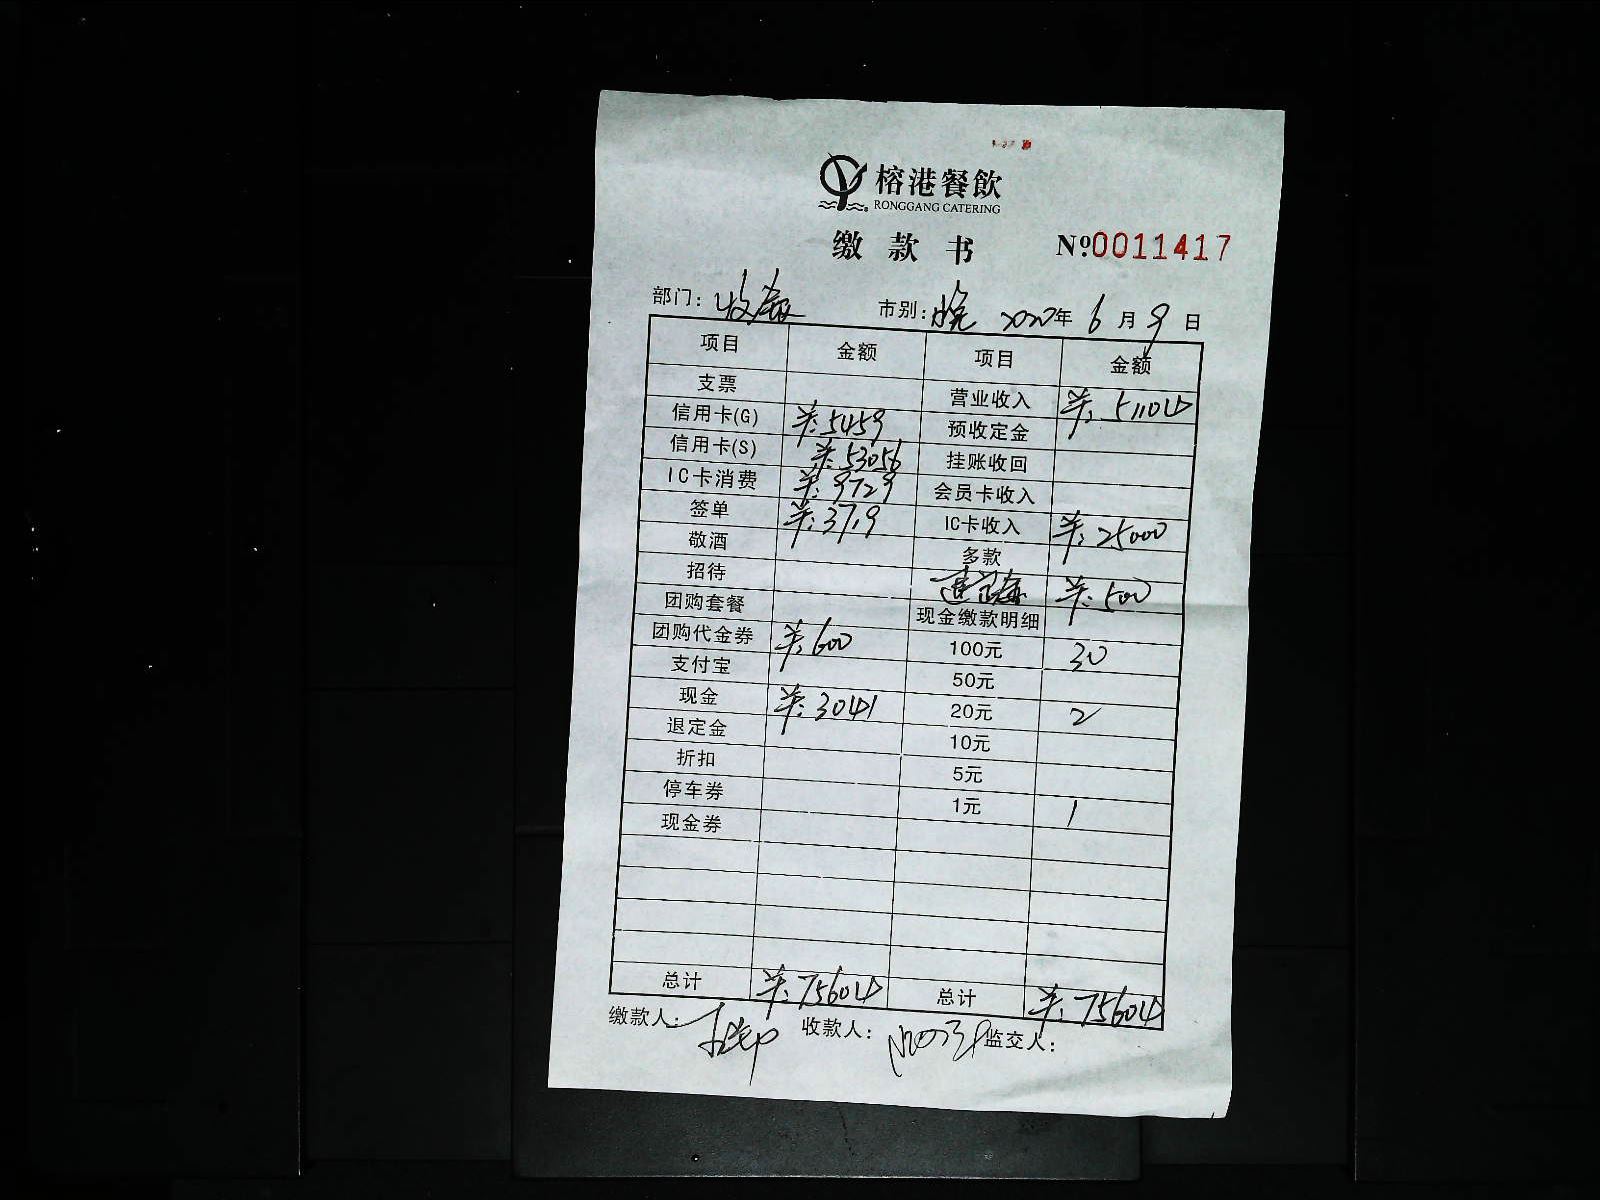 榕港餐飲
RONGGANG CATERING
缴款书 №0011417
部门: 收 市别: 晚 2020年 6月9日
项目 金额 项目 金额
支票 营业收入 羊:51104
信用卡(G) 羊:5459 预收定金
信用卡(S) 羊:53056 挂账收回
IC卡消费 羊:9729 会员卡收入
签单 羊:3719 IC卡收入 羊:25000
敬酒 多款
招待 羊:500
团购套餐 现金缴款明细
团购代金券 羊:600 100元 30
支付宝 50元
现金 羊:3041 20元 2
退定金 10元
折扣 5元
停车券 1元 1
现金券
总计 羊:75604 总计 羊:75604
缴款人: 收款人: 监交人: